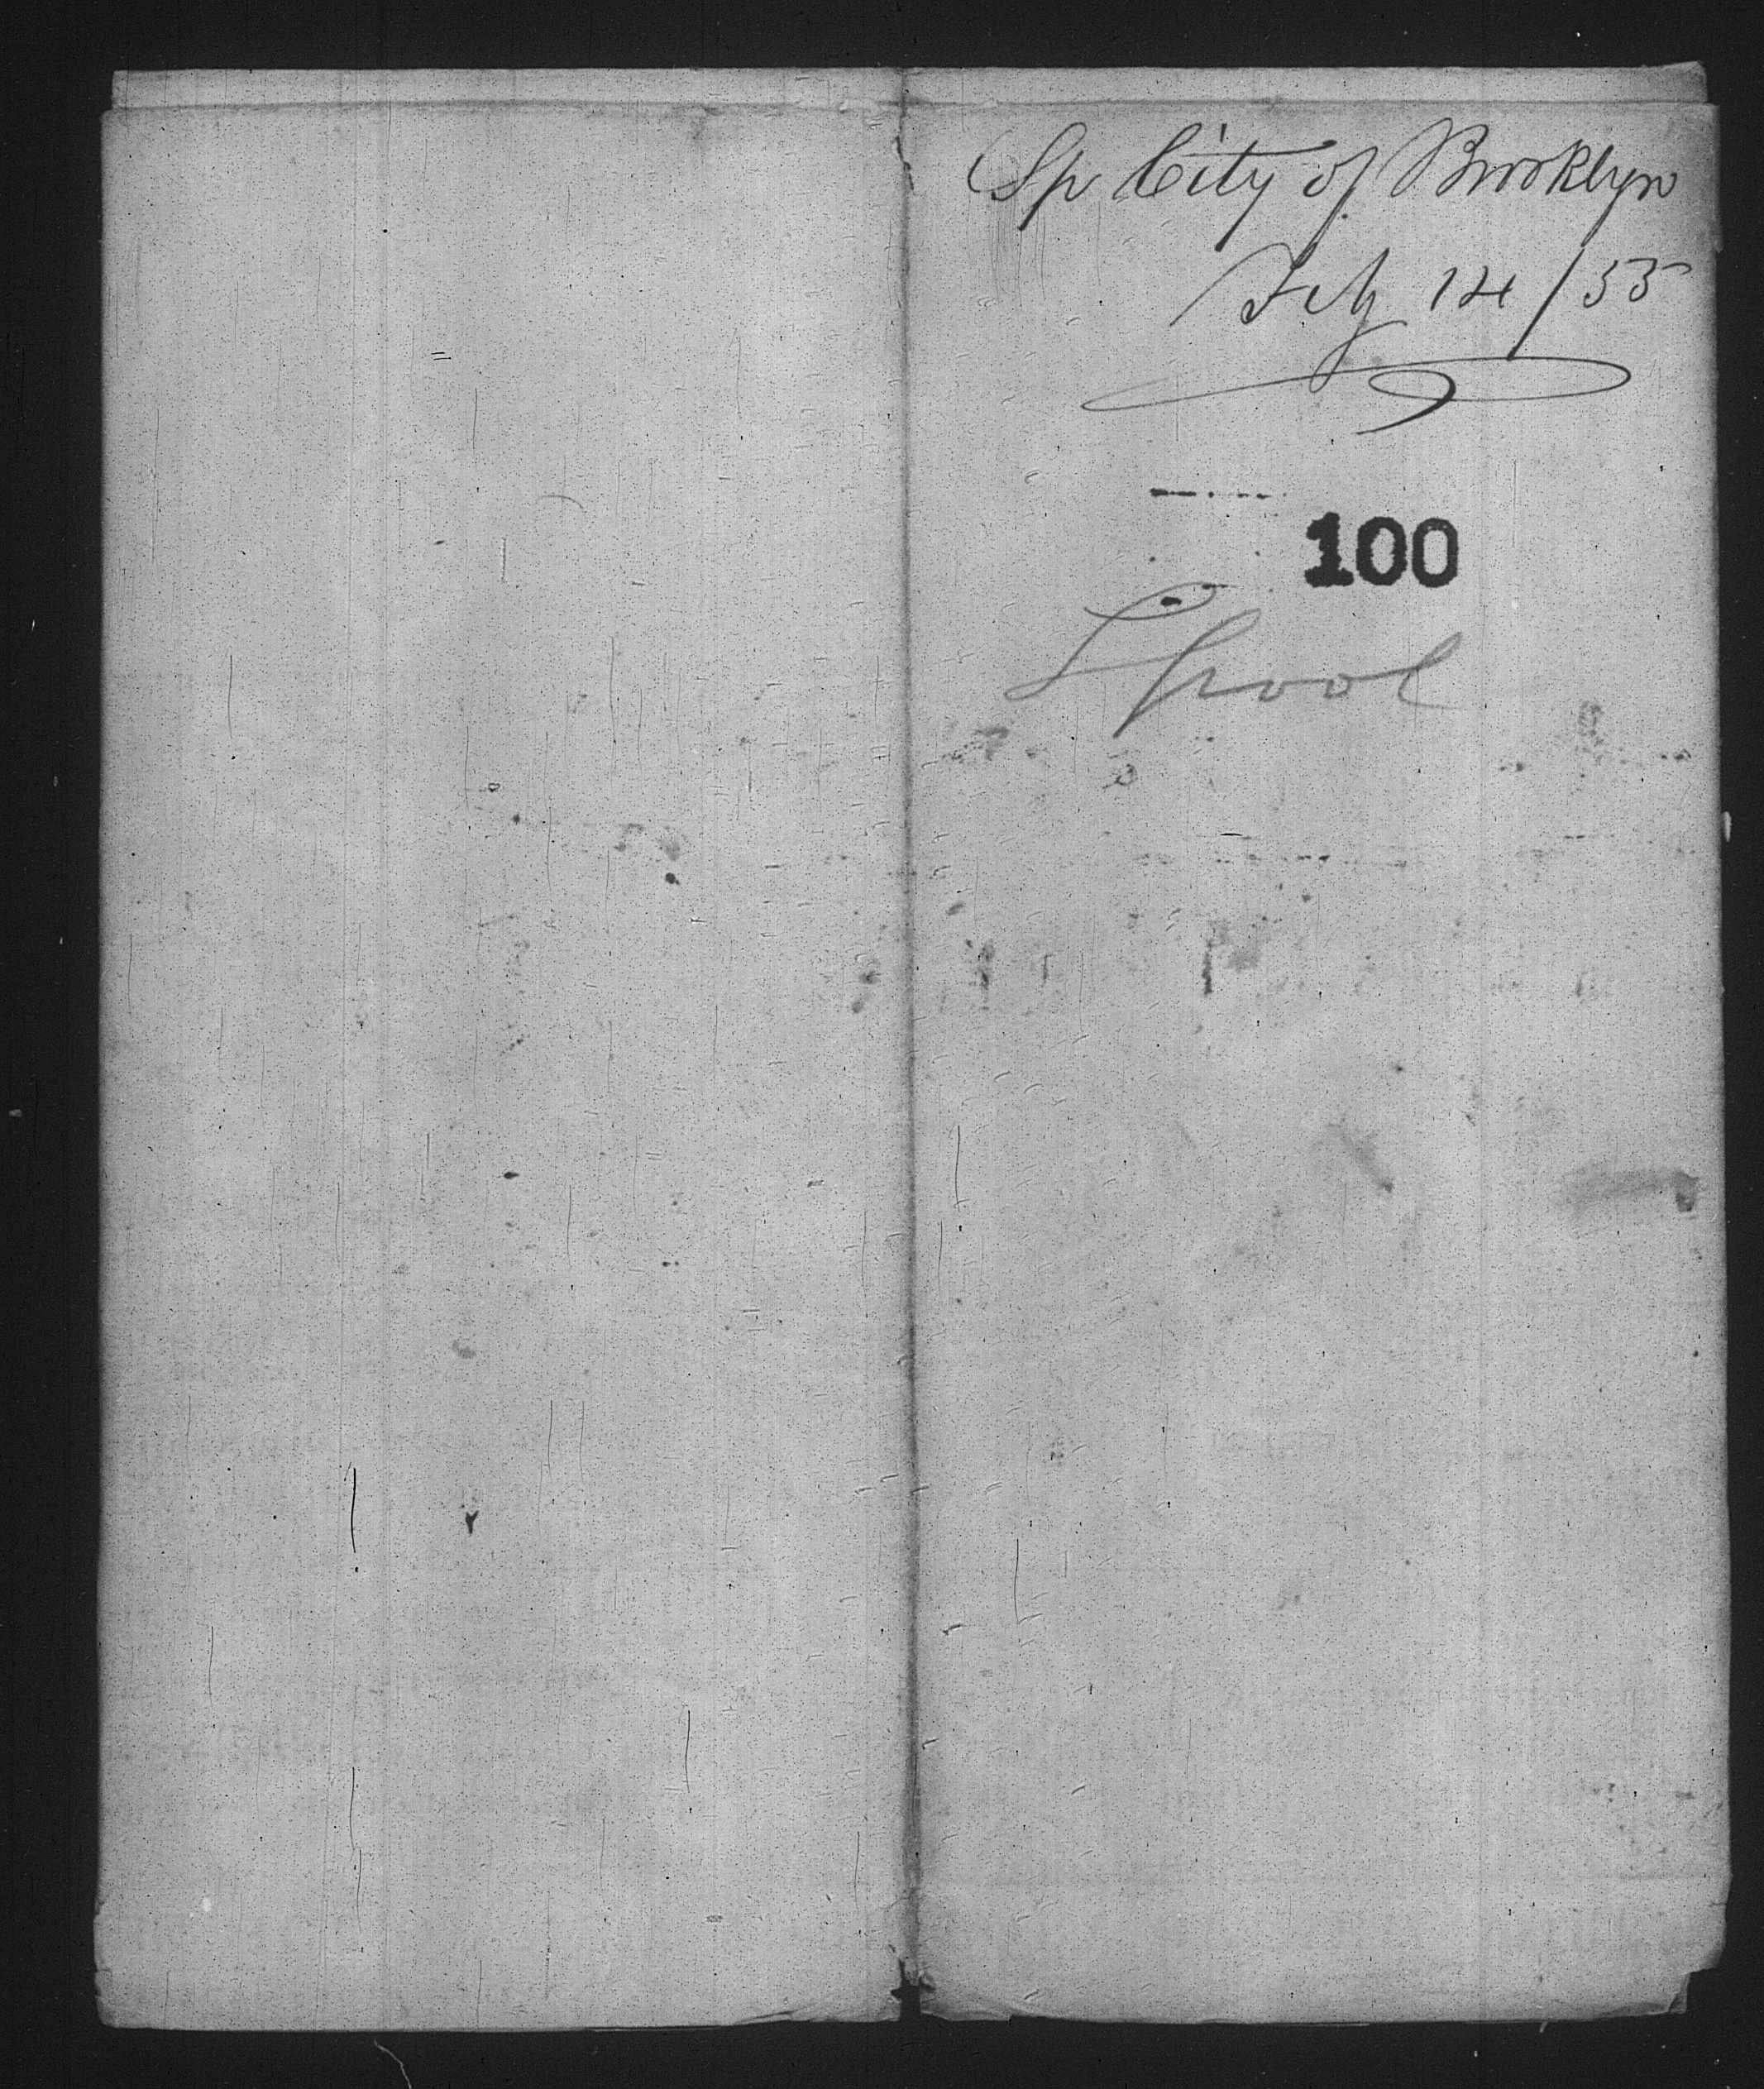 Sp City of Brooklyn
Feby 14/55
100
L'pool